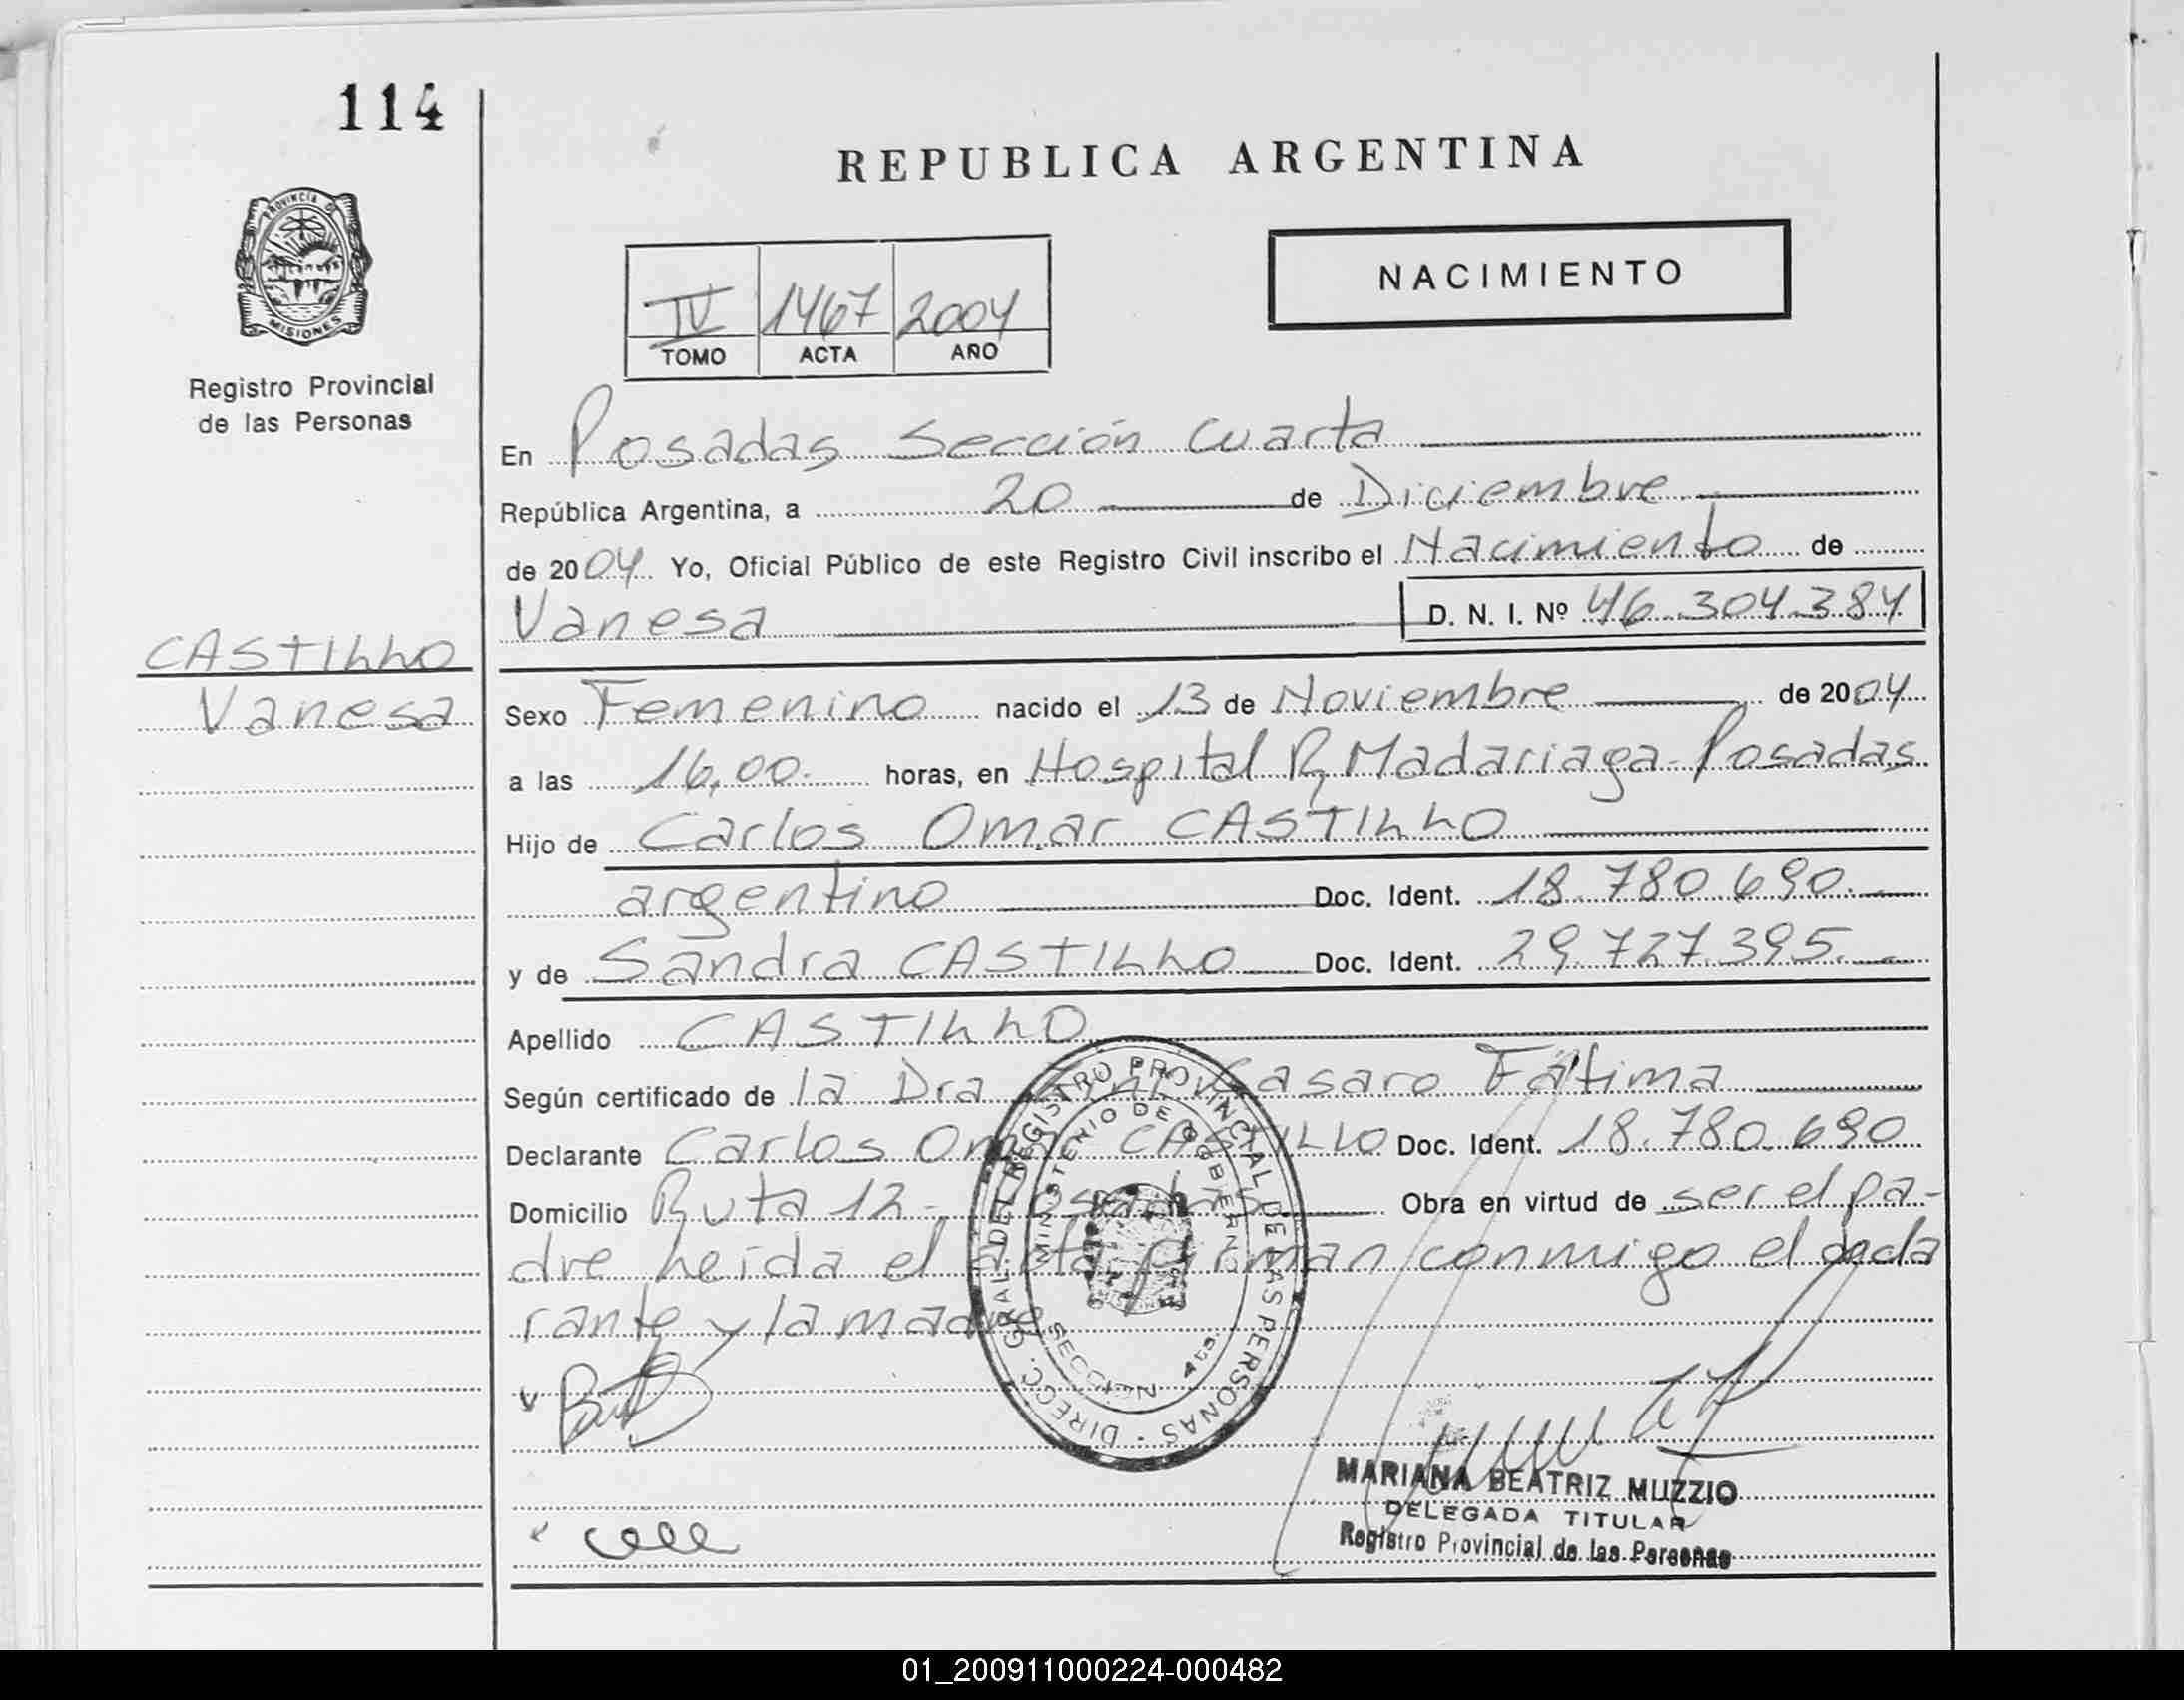 114
REPUBLICA ARGENTINA
PROVINCIA D
MISIONES
Registro Provincial
de las Personas
NACIMIENTO
IV 1467 2004
TOMO ACTA AÑO
En Posadas Sección Cuarta
República Argentina, a 20 de Diciembre
de 2004 Yo, Oficial Público de este Registro Civil inscribo el Nacimiento de
Vanesa D. N. I. Nº 46.304.384
CASTILLO
Vanesa
Sexo Femenino nacido el 13 de Noviembre de 2004
a las 16,00 horas, en Hospital R, Madariaga-Posadas
Hijo de Carlos Omar CASTILLO
argentino Doc. Ident. 18.780.690.
y de Sandra CASTILLO Doc. Ident. 29.727.395.
Apellido CASTILLO
Según certificado de la Dra Casaro Fátima
Declarante Carlos Omar CASTILLO Doc. Ident. 18.780.690
Domicilio Ruta 12- Posadas Obra en virtud de ser el pa-
dre heida el acta firman conmigo el decla
rante y la madre
DIRECC. GRAL. DEL REGISTRO PROVINCIAL DE LAS PERSONAS
MINISTERIO DE GOBIERNO
SECCION 4ta.
MARIANA BEATRIZ MUZZIO
DELEGADA TITULAR
Registro Provincial de las Personas
01_200911000224-000482